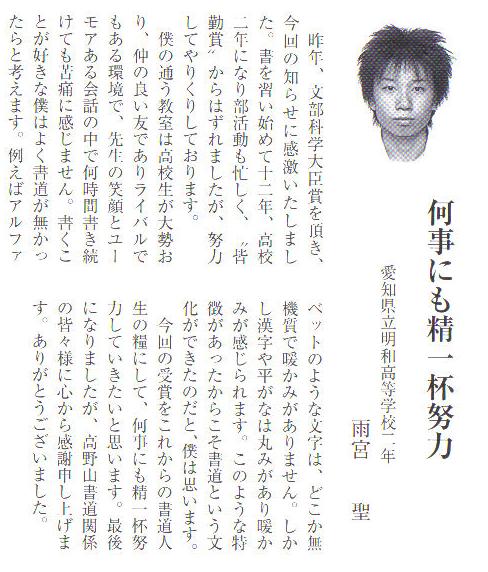 何事にも精一杯努力
愛知県立明和高等学校二年
雨宮　聖
　昨年、文部科学大臣賞を頂き、
今回の知らせに感激いたしまし
た。書を習い始めて十二年、高校
二年になり部活動も忙しく、〝皆
勤賞〟からはずれましたが、努力
してやりくりしております。
　僕の通う教室は高校生が大勢お
り、仲の良い友でありライバルで
もある環境で、先生の笑顔とユー
モアある会話の中で何時間書き続
けても苦痛に感じません。書くこ
とが好きな僕はよく書道が無かっ
たらと考えます。例えばアルファ
ベットのような文字は、どこか無
機質で暖かみがありません。しか
し漢字や平がなは丸みがあり暖か
みが感じられます。このような特
徴があったからこそ書道という文
化ができたのだと、僕は思います。
　今回の受賞をこれからの書道人
生の糧にして、何事にも精一杯努
力していきたいと思います。最後
になりましたが、高野山書道関係
の皆々様に心から感謝申し上げま
す。ありがとうございました。